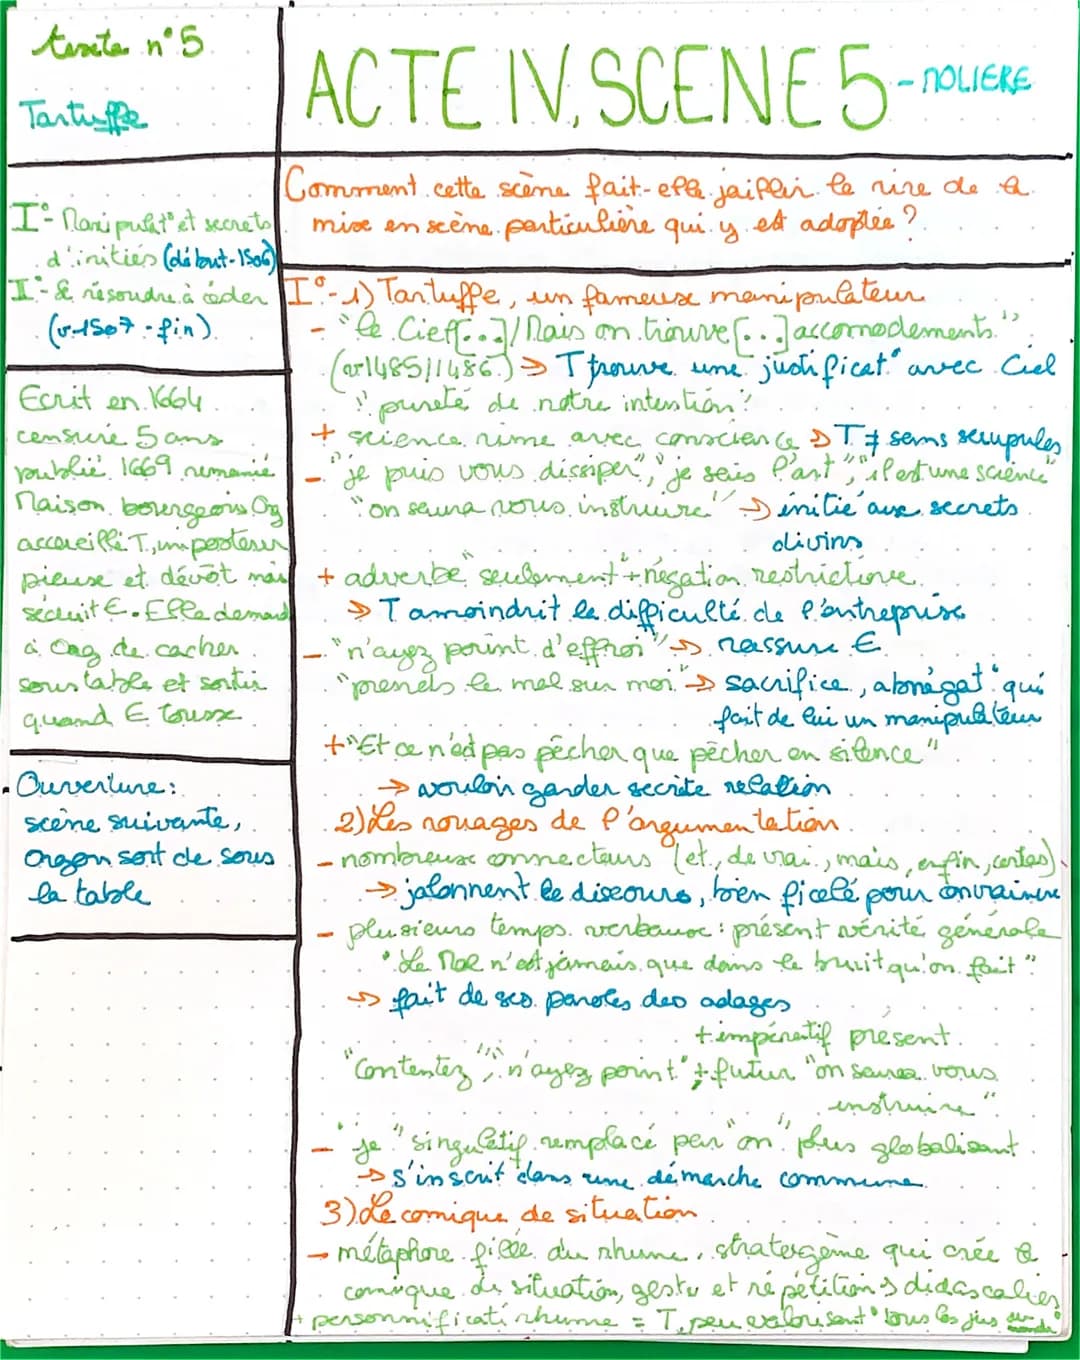 texte n°5
Tartuffe
ACTE IV, SCENE 5 - MOLIERE
I°- Manipulat° et secrets
d'initiés (début-1506)
I°- Se résoudre à céder
(v.1507 - fin)
Ecrit en 1664
censuré 5 ans
publié 1669 remanié
Maison bourgeois Org
accueille T, imposteur
pieuse et dévôt mais
séduit E. Elle demand
à Org de cacher
sous table et sortir
quand E tousse
Ouverture:
scène suivante,
Orgon sort de sous
la table
Comment cette scène fait-elle jaillir le rire de la
mise en scène particulière qui y est adoptée ?
I°-1) Tartuffe, un fameux manipulateur
- "le Ciel [...] / Mais on trouve [...] accomodements"
(v.1485/1486) → T trouve une justificat° avec Ciel
"pureté de notre intention"
+ science rime avec conscience → T ≠ sans scrupules
- "je puis vous dissiper", "je sais l'art", "il est une science"
"on saura vous instruire" → initié aux secrets
divins
+ adverbe "seulement" + négation restrictive
→ T amoindrit la difficulté de l'entreprise
- "n'ayez point d'effroi" → rassure E
"prends le mal sur moi" → sacrifice, abnégat° qui
fait de lui un manipulateur
+ "Et ce n'est pas pécher que pécher en silence"
→ vouloir garder secrète relation
2) Les rouages de l'argumentation
- nombreux connecteurs (et, de vrai, mais, enfin, certes)
→ jalonnent le discours, bien ficelé pour convaincre
- plusieurs temps verbaux : présent vérité générale
"Le Mal n'est jamais que dans le bruit qu'on fait"
→ fait de ses paroles des adages
+ impératif présent
"Contentez", "n'ayez point" + futur "on saura vous
instruire"
- "je" singulatif remplacé par "on" plus globalisant
→ s'inscrit dans une démarche commune
3) Le comique de situation
- métaphore filée du rhume, stratergème qui crée le
comique de situation, geste et répétition → didascalies
+ personnificati rhume = T, peu valorisant "tous les jus du monde"